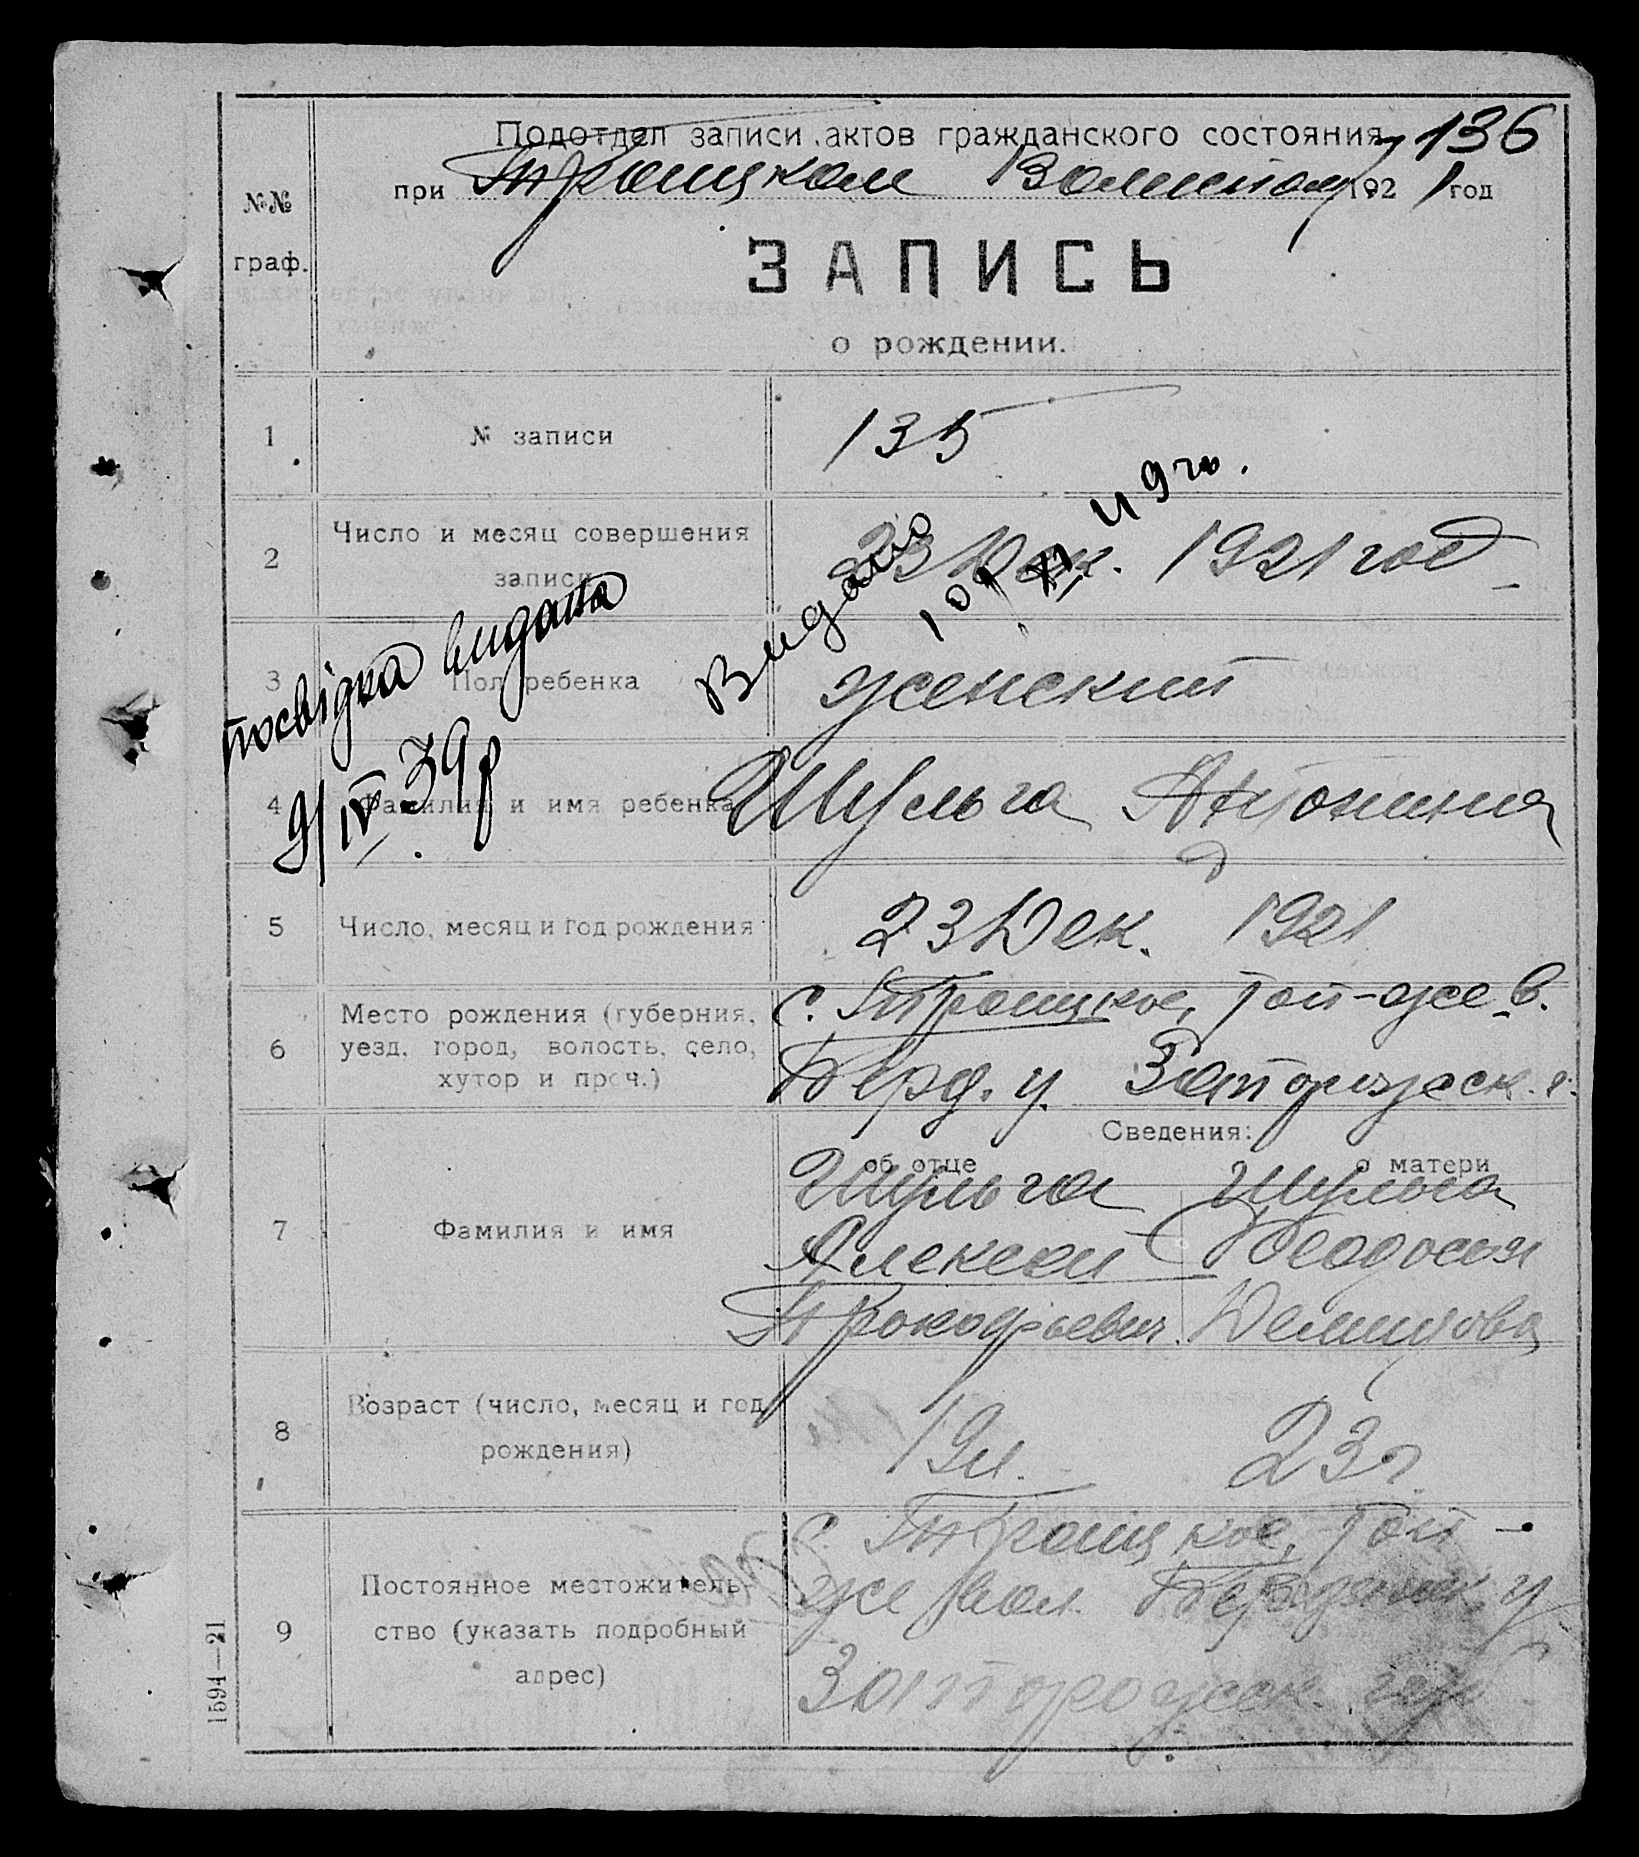 Подотдел записи актов гражданского состояния 136
при Троицком Волисполк. 1921 год
№№ граф.
ЗАПИСЬ
о рождении.
1 № записи 135
2 Число и месяц совершения записи 23 Дек. 1921 год
Видано 10/XI 49 г.
посвідка видана
9/IV 39 р
3 Пол ребенка женский
4 Фамилия и имя ребенка Шульга Антонина
5 Число, месяц и год рождения 23 Дек. 1921
6 Место рождения (губерния, уезд, город, волость, село, хутор и проч.) с. Троицкое, той-же в.
Берд. у. Запорожск. г.
Сведения:
об отце о матери
7 Фамилия и имя
Шульга Шульга
Алексей Феодосия
Прокофьевич Демидова
8 Возраст (число, месяц и год рождения) 19 л. 23 г.
9 Постоянное местожительство (указать подробный адрес)
с. Троицкое, той-
же вол. Бердянск. у.
Запорожск. губ.
1594—21